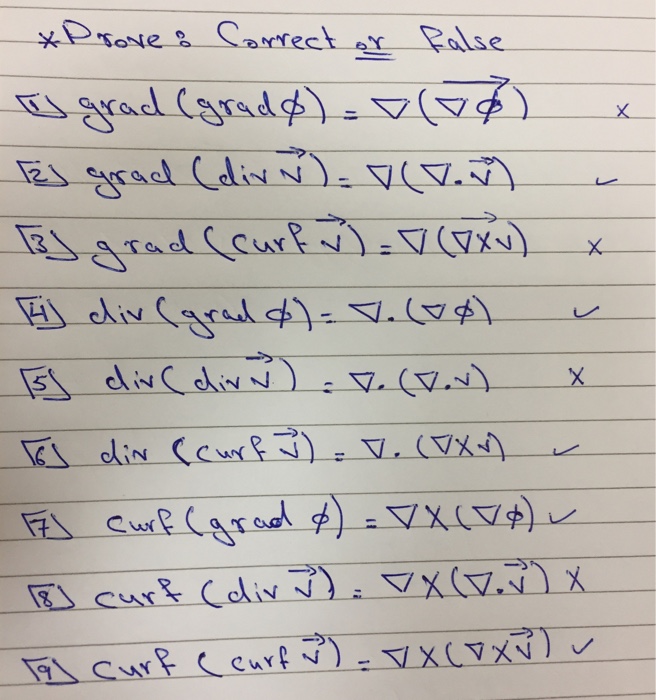 *Prove: Correct or False
[1] grad (grad ϕ) = ∇(∇ϕ⃗) ×
[2] grad (div V⃗) = ∇(∇.V⃗) ✓
[3] grad (curl V⃗) = ∇(∇×V⃗) ×
[4] div (grad ϕ) = ∇.(∇ϕ) ✓
[5] div (div V⃗) = ∇.(∇.V) ×
[6] div (curl V⃗) = ∇.(∇×V) ✓
[7] curl (grad ϕ) = ∇×(∇ϕ) ✓
[8] curl (div V⃗) = ∇×(∇.V⃗) ×
[9] curl (curl V⃗) = ∇×(∇×V⃗) ✓